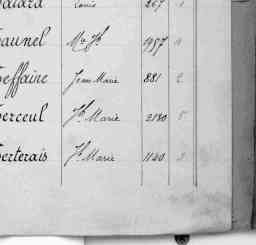 Louis 267 1
aunel Mie Jh 1957 11
effaine Jean Marie 881 2
erceul Jh Marie 2180 5
erterais Jh Marie 1120 3